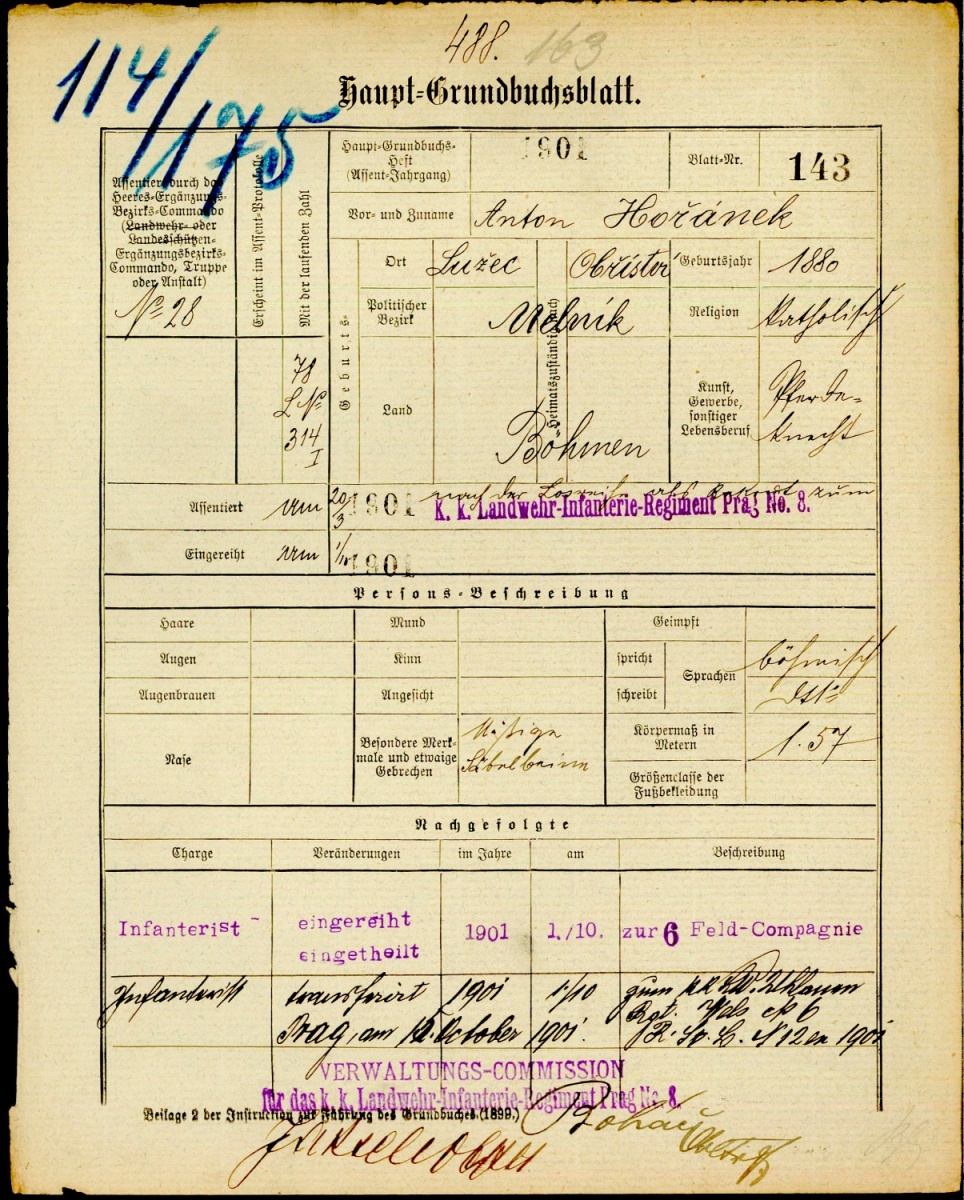 488. 163
114/175
Haupt-Grundbuchsblatt.
Assentiert durch das
Heeres-Ergänzungs-
Bezirks-Commando
(Landwehr- oder
Landesschützen-
Ergänzungsbezirks-
Commando, Truppe
oder Anstalt)
No 28
Erscheint im Assent-Protokolle
Mit der laufenden Zahl
78
L No
314
I
Haupt-Grundbuchs-
Heft
(Assent-Jahrgang)
1901
Blatt-Nr.
143
Vor- und Zuname
Anton Hořánek
Geburts-
Ort
Lužec
Heimatszuständig nach
Obříství
Geburtsjahr
1880
Politischer
Bezirk
Melník
Religion
katholisch
Land
Böhmen
Kunst,
Gewerbe,
sonstiger
Lebensberuf
Pferde-
knecht
Assentiert
am
20/3 1901
nach der Losreihe als Rekrut zum
k. k. Landwehr-Infanterie-Regiment Prag No. 8.
Eingereiht
am
1/10 1901
Persons-Beschreibung
Haare
Mund
Geimpft
Augen
Kinn
spricht
Sprachen
böhmisch
Augenbrauen
Angesicht
schreibt
Nase
Besondere Merk-
male und etwaige
Gebrechen
Mäßige
Säbelbeine
Körpermaß in
Metern
1.57
Größenclasse der
Fußbekleidung
Nachgefolgte
Charge
Veränderungen
im Jahre
am
Beschreibung
Infanterist
eingereiht
eingetheilt
1901
1./10.
zur 6 Feld-Compagnie
Infanterist
transferirt
1901
1/10
zum k.k. Lw. Uhlanen
Rgt. Wels No 6
Prag, am 15. October 1901.
12 ex 1901
VERWALTUNGS-COMMISSION
für das k. k. Landwehr-Infanterie-Regiment Prag No. 8.
Beilage 2 der Instruction zur Führung des Grundbuches (1899.)